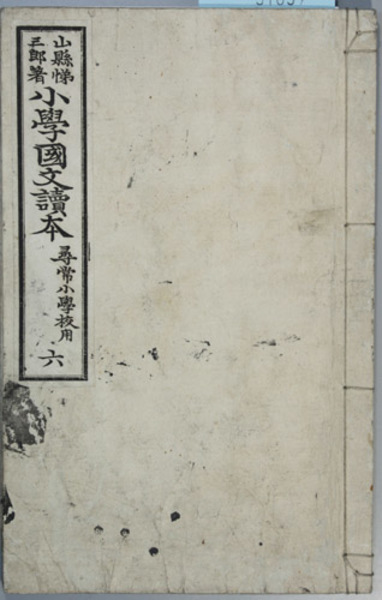 山縣悌
三郎著
小學國文讀本
尋常小學校用
六